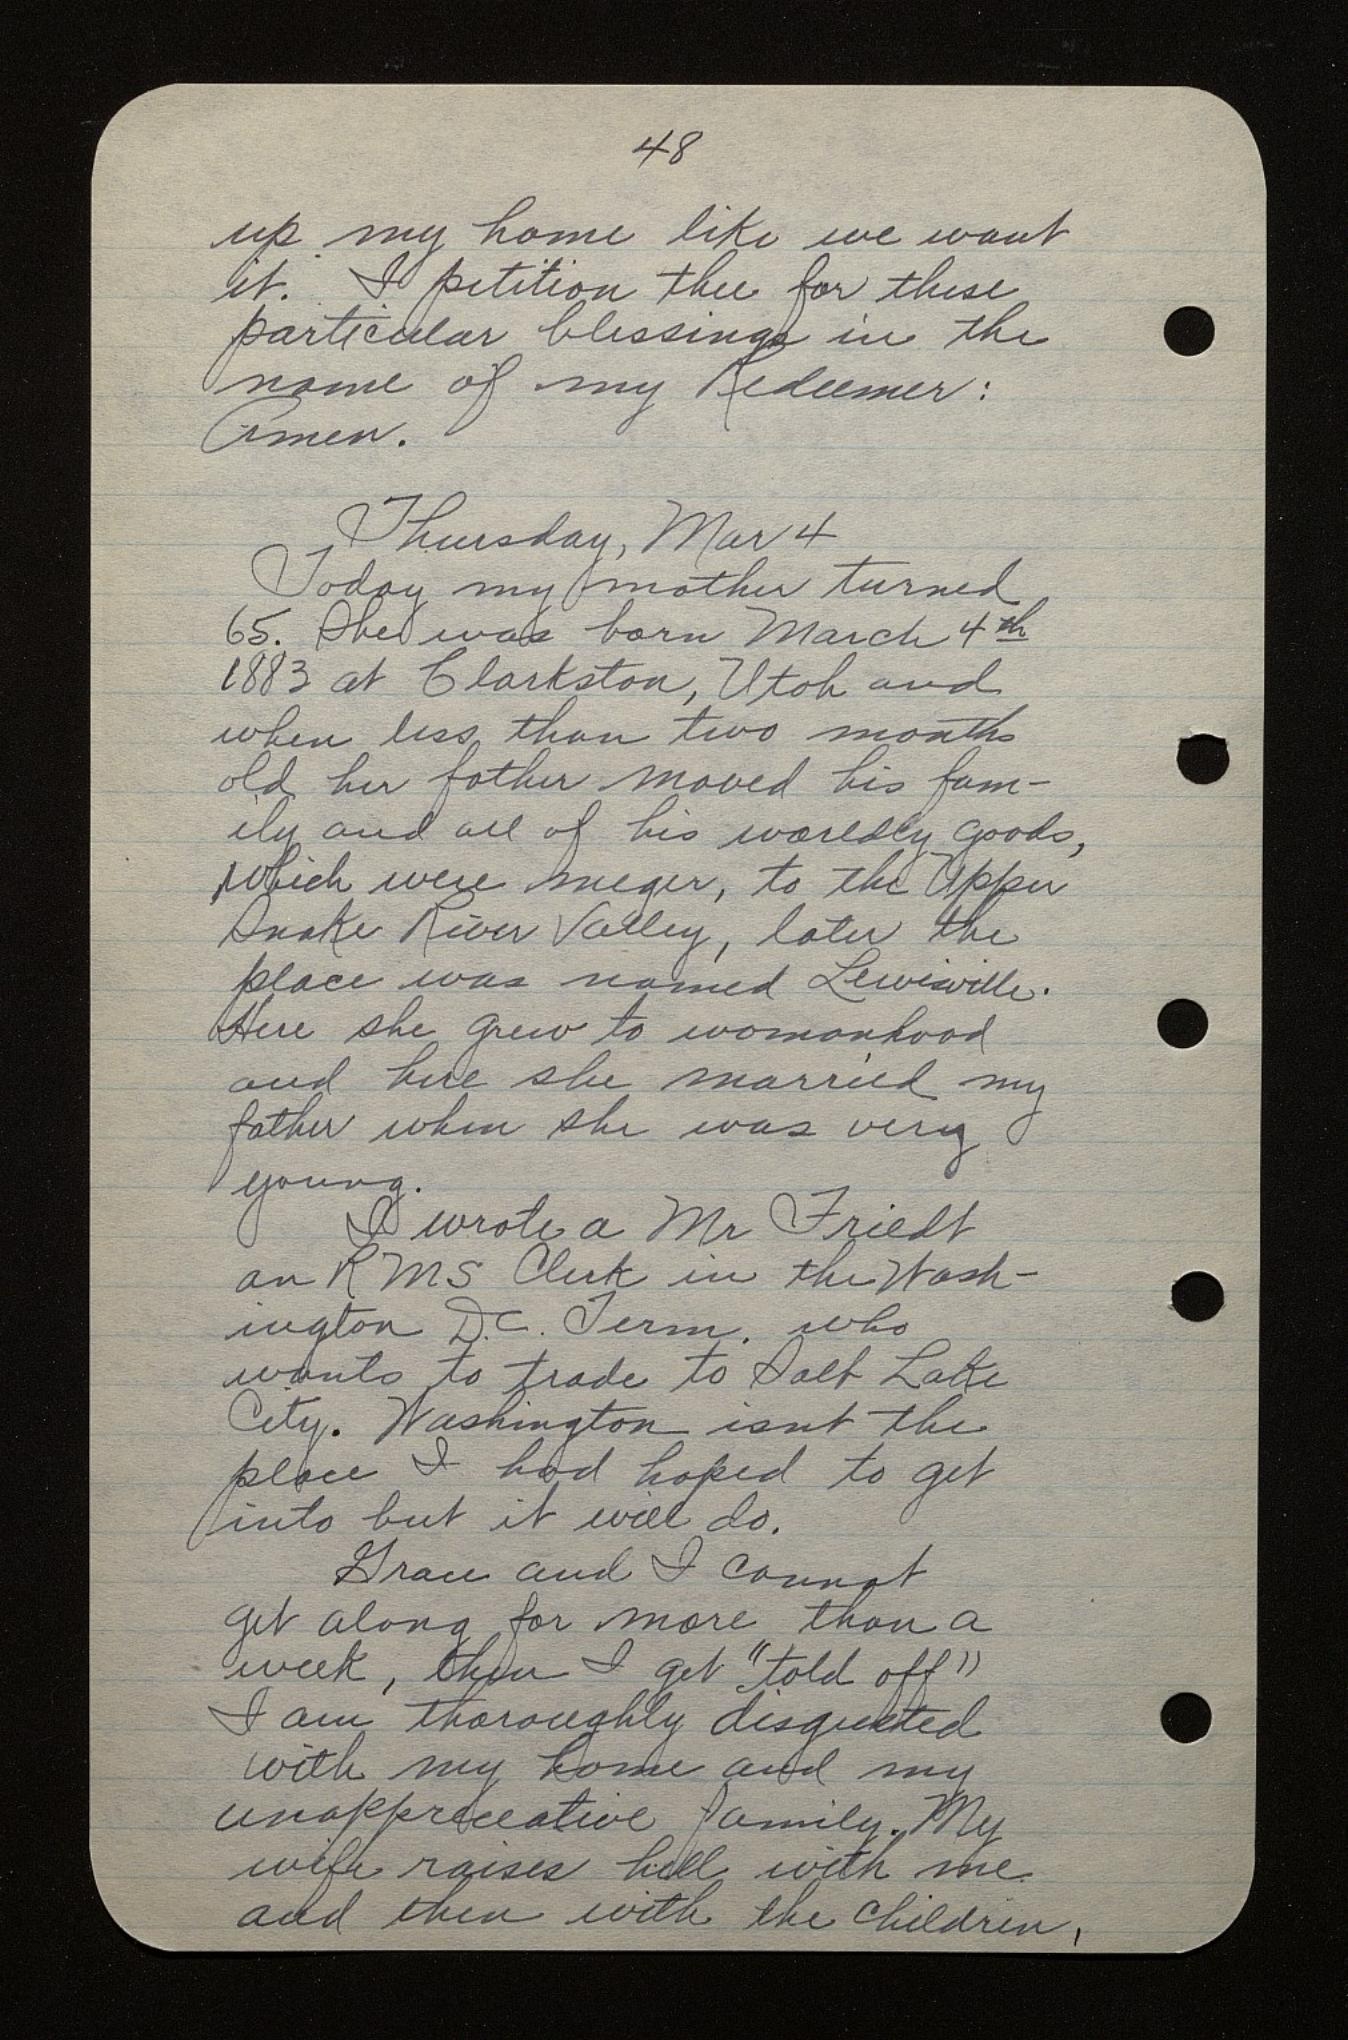 48
up my home like we want
it. I petition thee for these
particular blessings in the
name of my Redeemer:
Amen.
Thursday, Mar 4
Today my mother turned
65. She was born March 4th
1883 at Clarkston, Utah and
when less than two months
old her father moved his fam-
ily and all of his woreldly goods,
which were meger, to the Upper
Snake River Valley, later the
place was named Lewisville.
Here she grew to womanhood
and here she married my
father when she was very
young.
I wrote a Mr Friedt
an RMS Clerk in the Wash-
ington D.C. Term. who
wants to trade to Salt Lake
City. Washington isnt the
place I had hoped to get
into but it will do.
Grace and I cannot
get along for more than a
week, then I get "told off"
I am thoroughly disgusted
with my home and my
unappreceative family. My
wife raises hell with me
and then with the children,